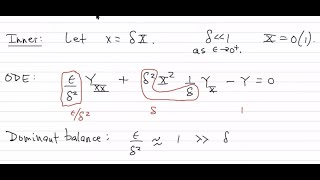 Inner: Let x = δX. δ<<1 X = O(1).
as ε→0⁺.
ODE: ε/δ² Y_XX + δ² X² 1/δ Y_X - Y = 0
ε/δ² δ 1
Dominant balance: ε/δ² ≈ 1 >> δ